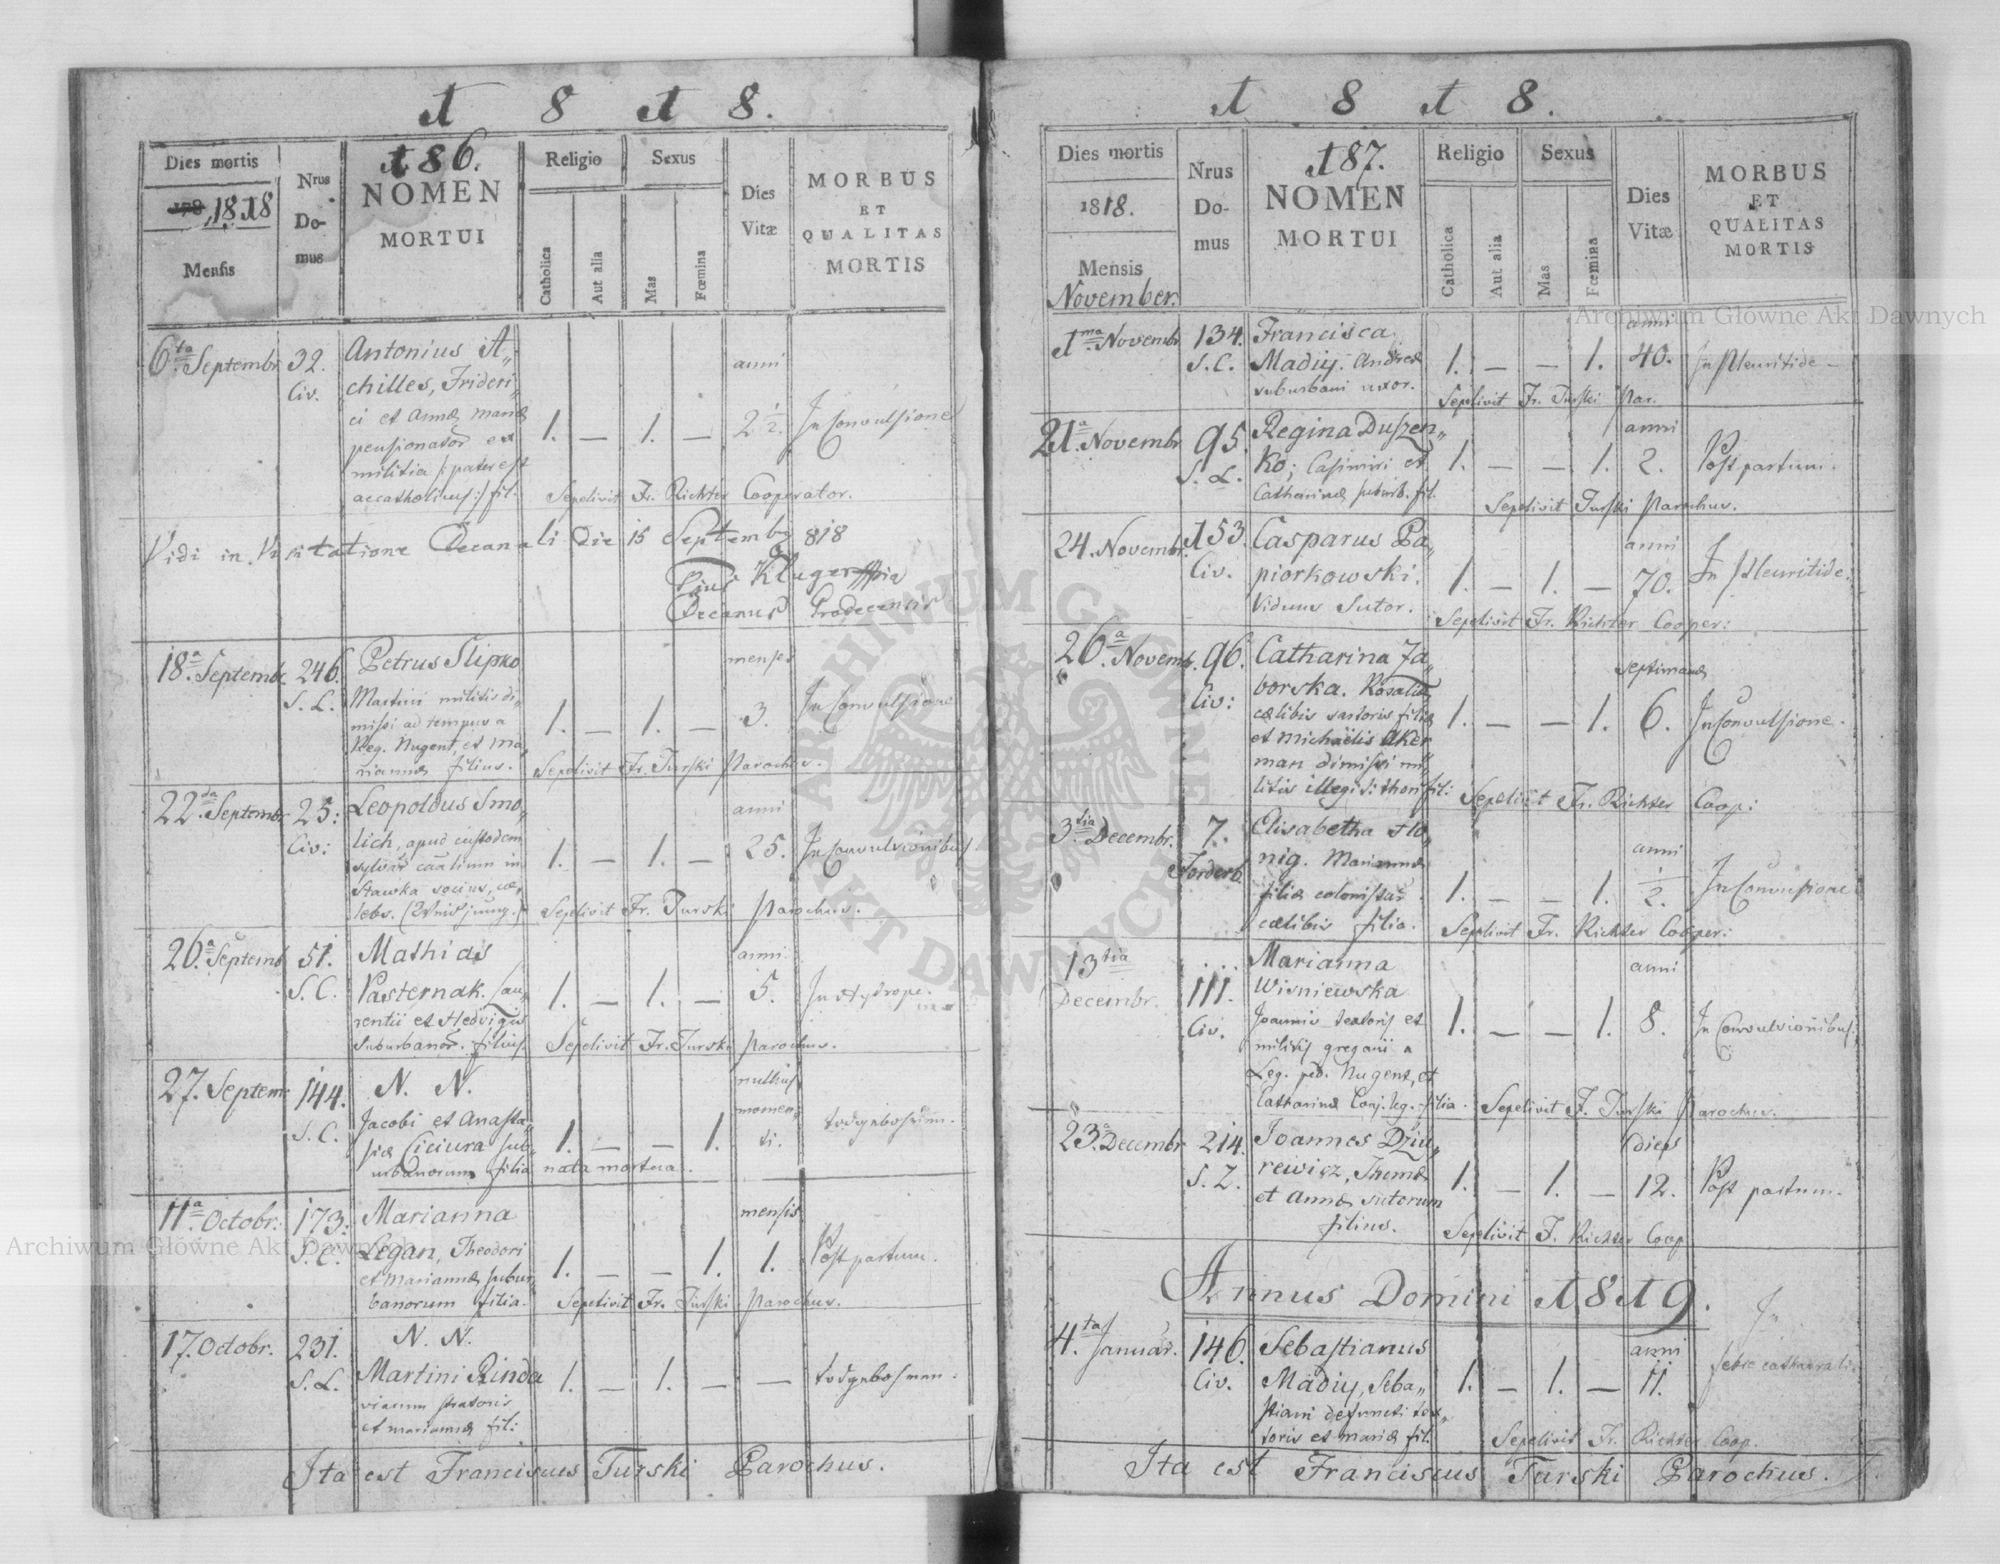 1 8 1 8.
186.
Dies mortis
1818
Mensis
Nrus
Do-
mus
NOMEN
MORTUI
Religio
Catholica
Aut alia
Sexus
Mas
Fœmina
Dies
Vitæ
MORBUS
ET
QUALITAS
MORTIS
6.ta Septembr. 32. Civ.
Antonius A„
chilles, Frideri„
ci et Annæ Mariæ
pensionator ex
militia /: pater est
accatholicus :/ fil.
1. — 1. — anni 2 1/2. In Convulsione
Sepelivit Fr. Richter Cooperator.
Vidi in Visitatione Decanali Die 15 Septembr 818
Pius Kluger mpia
Decanus Grodecensis
18.a Septembr. 246. S. L.
Petrus Slipko
Martini militis di„
missi ad tempus a
Reg. Nugent, et Ma„
riannæ filius.
1. — 1. — menses 3. In Convulsione
Sepelivit Fr. Turski Parochus.
22.da Septembr. 25. Civ:
Leopoldus Smo„
lich, apud custodem
sylvar
Stawka socius, cæ„
lebs.
1. — 1. — anni 25. In Convulsionibus
Sepelivit Fr. Turski Parochus.
26.a Septemb. 51. S. C.
Mathias
Pasternak. Lau„
rentii et Hedvigis
Suburbanor. filius.
1. — 1. — anni 5. In Hydrope.
Sepelivit Fr. Turski Parochus.
27. Septem. 144. S. C.
N. N.
Jacobi et Anasta„
siæ Ciciura sub„
urbanorum filia nata mortua.
1. — — 1. nullius momen„ ti. todgebohren.
11.a Octobr. 173. S. C.
Marianna
Legan, Theodori
et Mariannæ subur„
banorum filia.
1. — — 1. mensis 1. Post partum.
Sepelivit Fr. Turski Parochus.
17. Octobr. 231. S. L.
N. N.
Martini Rinda
viarum stratoris
et Mariannæ fil:
1. — 1. — — todgebohren.
Ita est Franciscus Turski Parochus.
1 8 1 8.
187.
Dies mortis
1818.
Mensis
November.
Nrus
Do-
mus
NOMEN
MORTUI
Religio
Catholica
Aut alia
Sexus
Mas
Fœmina
Dies
Vitæ
MORBUS
ET
QUALITAS
MORTIS
1.ma Novembr. 134. S. C.
Francisca
Madiy. Andreæ
suburbani uxor.
1. — — 1. anni 40. In Pleuritide.
Sepelivit Fr. Turski Par.
21.a Novembr. 95. S. L.
Regina Duszen„
ko; Casimiri et
Catharinæ suburb. fil.
1. — — 1. anni 2. Post partum.
Sepelivit Turski Parochus.
24. Novembr. 153. Civ.
Casparus Pa„
piorkowski.
Viduus Sutor.
1. — 1. — anni 70. In Pleuritide.
Sepelivit Fr. Richter Cooper:
26.a Novemb. 96. Civ:
Catharina Ja„
borska. Rosaliæ
cælibis sartoris filiæ
et Michaelis Aker„
man dimissi mi„
litis illegit: thori fil:
1. — — 1. septimanæ 6. In Convulsione.
Sepelivit Fr. Richter Coop:
3.tia Decembr. 7. Forderb.
Elisabetha Ho„
nig. Mariannæ
filiæ colonistar.
cælibis filia.
1. — — 1. anni 1/2. In Convulsione
Sepelivit Fr. Richter Cooper:
13tia Decembr. 111. Civ.
Marianna
Wisniewska
Joannis textoris et
militis gregarii a
Leg. ped. Nugent, et
Catharinæ Conj. leg. filia.
1. — — 1. anni 8. In Convulsionibus.
Sepelivit F. Turski Parochus.
23.a Decembr. 214. S. L.
Joannes Dziu„
rewicz, Thomæ
et Annæ sutorum
filius.
1. — 1. — dies 12. Post partum.
Sepelivit F. Richter Coop
Annus Domini 1819.
4.ta Januar. 146. Civ.
Sebastianus
Madiy, Seba„
stiani defuncti tex„
toris et Mariæ fil.
1. — 1. — anni 11. In febre catharrali.
Sepelivit Fr. Richter Coop.
Ita est Franciscus Turski Parochus.
Archiwum Główne Akt Dawnych
Archiwum Główne Akt Dawnych
ARCHIWUM GŁÓWNE AKT DAWNYCH